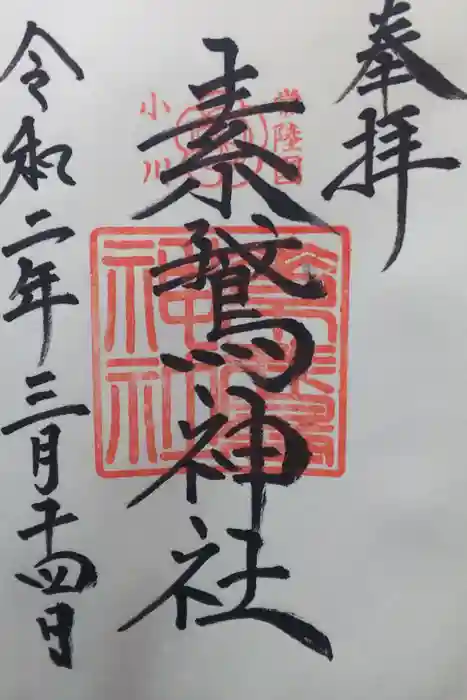 奉拝
常陸国
小川
素鵞神社
素鵞神社
令和二年三月二十四日